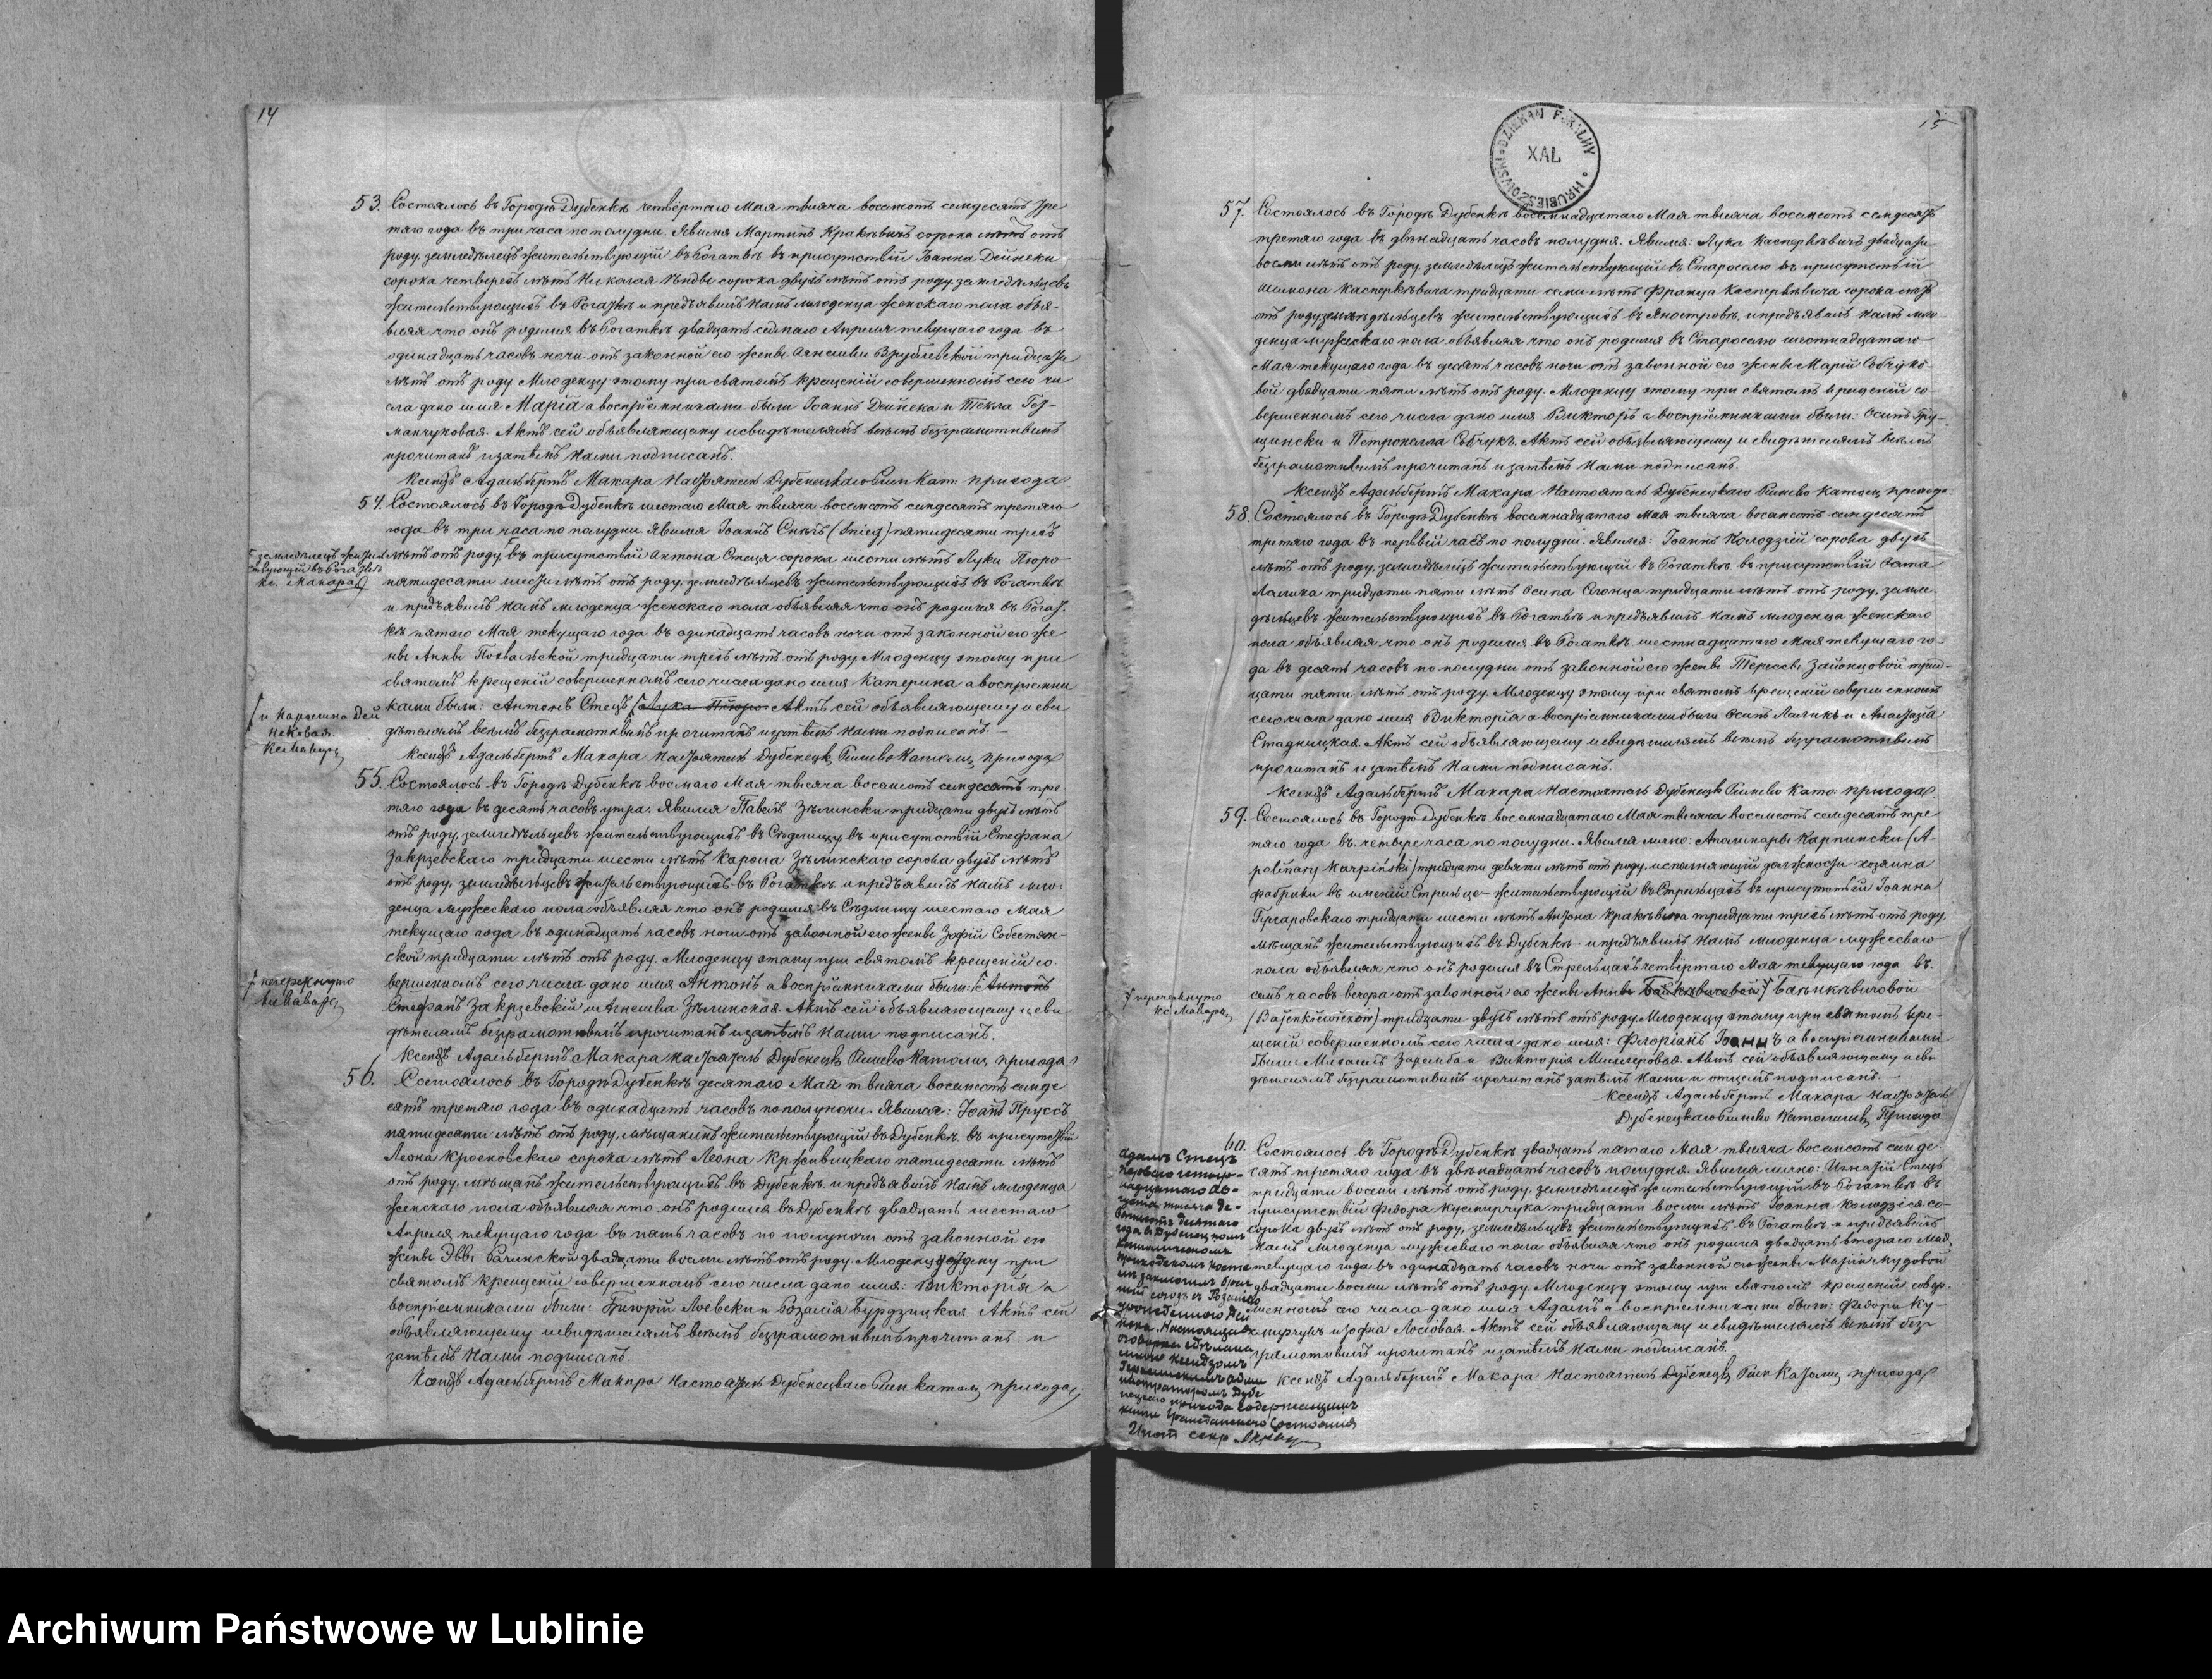 14
53. Состоялось въ Городѣ Дубенкѣ четвёртаго Мая тысяча восемсотъ семдесятъ тре
тяго года въ три часа по полудни. Явился Мартинъ Кракевичъ сорока лѣтъ отъ
роду, земледѣлецъ жительствующій въ Рогаткѣ въ присутствіи Іоанна Дейнеки
сорока четырехъ лѣтъ Николая сорока двухъ лѣтъ отъ роду, земледѣльцевъ
жительствующихъ въ Рогаткѣ и предъявилъ Намъ младенца женскаго пола объя-
вляя что онъ родился въ Рогаткѣ двадцать седмаго Апреля текущаго года въ
одинадцать часовъ ночи отъ законной его жены Агнешки Врублевской тридцати
лѣтъ отъ роду Младенцу этому при святомъ крещеніи совершенномъ сего чи
сла дано имя Марія а воспріемниками были Іоаннъ Дейнека и Текла Гоз-
манчуковая. Актъ сей объявляющему и свидѣтелямъ всѣмъ безграмотнымъ
прочитанъ и затѣмъ Нами подписанъ.
Ксендзъ Адальбертъ Макара Настоятель Дубенецкаго Рим Кат. прихода
54. Состоялось въ Городѣ Дубенкѣ шестаго Мая тысяча восемсотъ семдесятъ третяго
года въ три часа по полудни Явился Іоаннъ Снѣгъ (Śnieg) пятидесяти трехъ
лѣтъ отъ роду въ присутствіи Антона Стеця сорока шести лѣтъ Луки Пюро
пятидесяти шести лѣтъ отъ роду, земледѣльцевъ жительствующихъ въ Рогаткѣ
и предъявилъ намъ младенца женскаго пола объявляя что онъ родился въ Рогат-
кѣ пятаго Мая текущаго года въ одинадцать часовъ ночи отъ законной его же
ны Анны тридцати трехъ лѣтъ отъ роду Младенцу этому при
святомъ крещеніи совершенномъ сего числа дано имя Катерина а воспріемни
ками были: Антонъ Стецъ Лука Пюро Актъ сей объявляющему и сви
дѣтелямъ всѣмъ безграмотнымъ прочитанъ и затѣмъ Нами подписанъ.
Ксендзъ Адальбертъ Макара Настоятель Дубенецк Римско Католиц прихода
земледѣлецъ жительствующій въ Рогаткѣ
Кс. Макара
и Каролина Дей
нековая
Кс Макара
55. Состоялось въ Городѣ Дубенкѣ восмаго Мая тысяча восемсотъ семдесятъ тре
тяго года въ десять часовъ утра. Явился Павелъ Зѣлински тридцати двухъ лѣтъ
отъ роду, земледѣльцевъ жительствующихъ въ Сѣдлищу въ присутствіи Стефана
Закрзевскаго тридцати шести лѣтъ Кароля Зѣлинскаго сорока двухъ лѣтъ
отъ роду, земледѣльцевъ жительствующихъ въ Рогаткѣ и предъявилъ Намъ мла-
денца мужескаго пола объявляя что онъ родился въ Сѣдлищу шестаго Мая
текущаго года въ одинадцать часовъ ночи отъ законной его жены Зофіи Собестян-
ской тридцати лѣтъ отъ роду. Младенцу этому при святомъ крещеніи со-
вершенномъ сего числа дано имя Антонъ а воспріемниками были: Антонъ
Стефанъ Закрзевскій и Агнешка Зѣлинская. Актъ сей объявляющему и сви
дѣтелямъ безграмотнымъ прочитанъ и затѣмъ Нами подписанъ.
Ксендзъ Адальбертъ Макара Настоятель Дубенецк Римско Католиц прихода
перечеркнуто
Кс Макара
56. Состоялось въ Городѣ Дубенкѣ десятаго Мая тысяча восемсотъ семде
сятъ третяго года въ одинадцать часовъ по полуночи. Явился: Іоаннъ Пруссъ
пятидесяти лѣтъ отъ роду, мѣщанинъ жительствующій въ Дубенкѣ въ присутствіи
Леона Кросновскаго сорока лѣтъ Леона Крживицкаго пятидесяти лѣтъ
отъ роду, мѣщанъ жительствующихъ въ Дубенкѣ и предъявилъ Намъ младенца
женскаго пола объявляя что онъ родился въ Дубенкѣ двадцать шестаго
Апреля текущаго года въ пять часовъ по полуночи отъ законной его
жены Эввы двадцати восми лѣтъ отъ роду. Младенцу этому при
святомъ крещеніи совершенномъ сего числа дано имя: Викторія а
воспріемниками были: Лоевски и Розалія Бурдзицкая. Актъ сей
объявляющему и свидѣтелямъ всѣмъ безграмотнымъ прочитанъ и
затѣмъ Нами подписанъ.
Ксендзъ Адальбертъ Макара Настоятель Дубенецкаго Рим католиц прихода
15
DZIEKAN FORALNY HRUBIESZOWSKI
XAL
57. Состоялось въ Городѣ Дубенкѣ восемнадцатаго Мая тысяча восемсотъ семдесятъ
третяго года въ двѣнадцать часовъ полудня. Явился: Лука Касперкевичъ двадцати
восми лѣтъ отъ роду, земледѣлецъ жительствующій въ Староселю въ присутствіи
Шимона Касперкевича тридцати семи лѣтъ Франца Касперкевича сорока лѣтъ
отъ роду земледѣльцевъ жительствующихъ въ Яностровѣ, и предъявилъ Намъ мла-
денца мужескаго пола объявляя что онъ родился въ Староселю шестнадцатаго
Мая текущаго года въ десять часовъ ночи отъ законной его жены Маріи Собчуко-
вой двадцати пяти лѣтъ отъ роду. Младенцу этому при святомъ крещеніи со-
вершенномъ сего числа дано имя Викторъ а воспріемниками были: Осипъ Гру-
щински и Петронелла Собчукъ. Актъ сей объявляющему и свидѣтелямъ всѣмъ
безграмотнымъ прочитанъ и затѣмъ Нами подписанъ.
Ксендзъ Адальбертъ Макара Настоятель Дубенецкаго Римско Католц прихода
58. Состоялось въ Городѣ Дубенкѣ восемнадцатаго Мая тысяча восемсотъ семдесятъ
третяго года въ первый часъ по полудни. Явился: Іоаннъ Колодзій сорока двухъ
лѣтъ отъ роду, земледѣлецъ жительствующій въ Рогаткѣ въ присутствіи
тридцати пяти лѣтъ Осипа тридцати лѣтъ отъ роду, земле-
дѣльцевъ жительствующихъ въ Рогаткѣ и предъявилъ Намъ младенца женскаго
пола объявляя что онъ родился въ Рогаткѣ шестнадцатаго Мая текущаго го-
да въ десять часовъ по полудни отъ законной его жены Терессы Зайонцовой трид-
цати пяти лѣтъ отъ роду. Младенцу этому при святомъ крещеніи совершенномъ
сего числа дано имя Викторія а воспріемниками были Осипъ и Анастазія
Стадницкая. Актъ сей объявляющему и свидѣтелямъ всѣмъ безграмотнымъ
прочитанъ и затѣмъ Нами подписанъ.
Ксендзъ Адальбертъ Макара Настоятель Дубенецк Римско Като: прихода
59. Состоялось въ Городѣ Дубенкѣ восемнадцатаго Мая тысяча восемсотъ семдесятъ тре
тяго года въ четыре часа по полудни. Явился лично: Аполинары Карпински (A-
polinary Karpiński) тридцати девяти лѣтъ отъ роду, исполняющій должность хозяина
фабрики въ имѣніи Стрѣльце жительствующій въ Стрѣльцахъ въ присутствіи Іоанна
тридцати шести лѣтъ Антона Кракевича тридцати трехъ лѣтъ отъ роду,
мѣщанъ жительствующихъ въ Дубенкѣ и предъявилъ Намъ младенца мужескаго
пола объявляя что онъ родился въ Стрельцахъ четвёртаго Мая текущаго года въ
семь часовъ вечера отъ законной его жены Анны Баѣнкѣвичовой
(Bajenkiewiczow) тридцати двухъ лѣтъ отъ роду. Младенцу этому при святомъ кре-
щеніи совершенномъ сего числа дано имя: Флоріанъ Іоаннъ а воспріемниками
были: Михаилъ Заремба и Викторія Миллеровая. Актъ сей объявляющему и сви
дѣтелямъ безграмотнымъ прочитанъ затѣмъ Нами и отцемъ подписанъ.
Ксендзъ Адальбертъ Макара Настоятель
Дубенецкаго Римско Католицк Прихода
перечеркнуто
Кс Макара
60. Состоялось въ Городѣ Дубенкѣ двадцать пятаго Мая тысяча восемсотъ семде
сятъ третяго года въ двѣнадцать часовъ полудня. Явился лично: Игнатій Стецъ
тридцати восми лѣтъ отъ роду, земледѣлецъ жительствующій въ Рогаткѣ въ
присутствіи Федора Кусмирчука тридцати восми лѣтъ Іоанна Колодзія со-
рока двухъ лѣтъ отъ роду, земледѣльцевъ жительствующихъ въ Рогаткѣ и предъявилъ
Намъ младенца мужескаго пола объявляя что онъ родился двадцать втораго Мая
текущаго года въ одинадцать часовъ ночи отъ законной его жены Маріи Мудовой
двадцати восми лѣтъ отъ роду. Младенцу этому при святомъ крещеніи совер-
шенномъ сего числа дано имя Адамъ а воспріемниками были: Федоръ Ку-
смирчукъ и Зофія Лосіовая. Актъ сей объявляющему и свидѣтелямъ всѣмъ без-
грамотнымъ прочитанъ и затѣмъ Нами подписанъ.
Ксендзъ Адальбертъ Макара Настоятель Дубенецк Рим Католиц прихода
Адамъ Стецъ
Перваго четыр-
надцатаго Ав-
густа тысяча де-
вятьсотъ десятаго
года въ Дубенецкомъ
Католическомъ
приходскомъ косте-
лѣ заключилъ брач-
ный союзъ съ Розаліею
урожденною Дей
нека. Настоящая
оговорка сдѣлана
мною Ксендзомъ
админи
страторомъ Дубе
нецкаго прихода содержащимъ
книги Гражданскаго Состоянія
Archiwum Państwowe w Lublinie